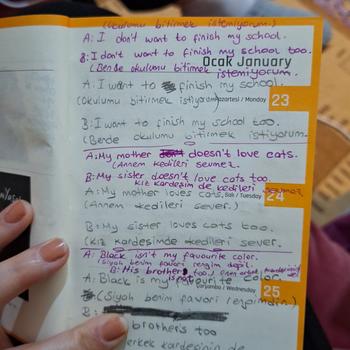 (Okulumu bitirmek istemiyorum.)
A: I don't want to finish my school.
B: I don't want to finish my school too.
Ocak January
(Bende okulumu bitirmek istemiyorum.
A: I want to finish my school.
(Okulumu bitirmek istiyo
Pazartesi / Monday 23
B: I want to finish my school too.
(Berde okulumu bitirmek istiyorum.
A: My mother doesn't love cats.
(Annem kedileri sevmez.
B: My sister doesn't love cats too.
Kız kardeşim de kedileri sevmez
A: My mother loves cats.
Salı / Tuesday 24
(Annem kedileri sever.)
B: My sister loves cats too.
(Kız kardeşimde kedileri sever.
A: Black isn't my favourite color.
(Siyah benim favori rengim değil.
B: His brother too.
A: Black is my favourite color
Çarşamba / Wednesday 25
(Siyah benim favori rengimdir.)
B:
brothers too
erkek kardeşinin de